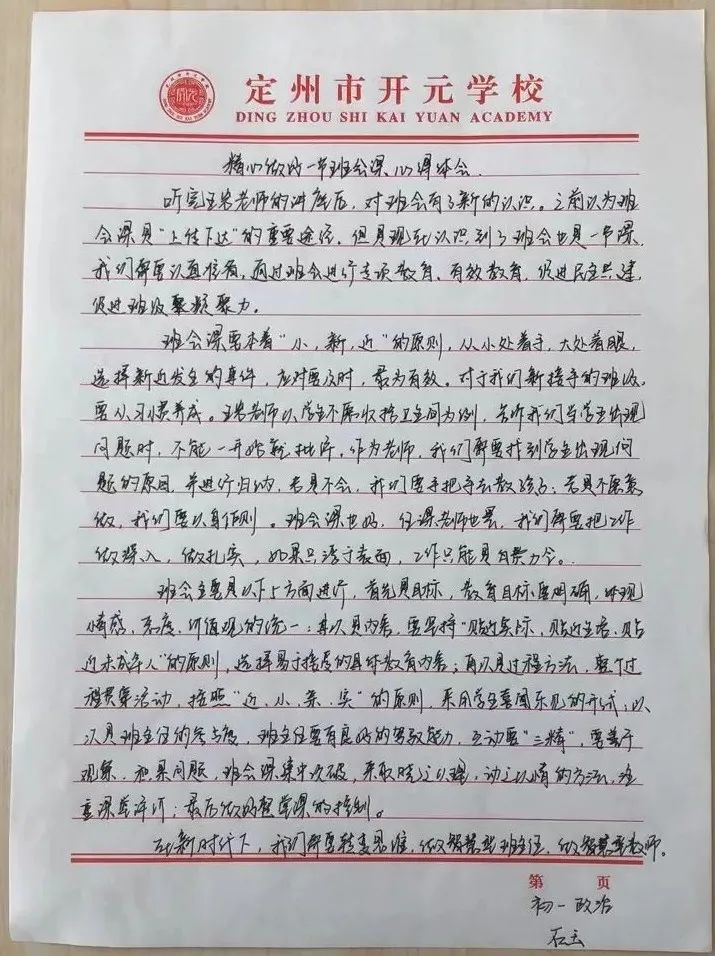 定州市开元学校
DING ZHOU SHI KAI YUAN ACADEMY
精心做好一节班会课心得体会
听完王岩老师的讲座后，对班会有了新的认识。之前以为班
会课是“上传下达”的重要途径，但是现在认识到了班会也是一节课，
我们都要认真准备，通过班会进行专项教育、有效教育，促进民主共建，
促进班级聚凝聚力。
班会课要本着“小，新，近”的原则，从小处着手，大处着眼，
选择新近发生的事件，应对要及时，最为有效。对于我们新接手的班级，
要从习惯养成。老师以学生不愿收拾卫生间为例，告诉我们当学生出现
问题时，不能一开始就批评，作为老师，我们都要找到学生出现问
题的原因，并进行归纳，若是不会，我们要手把手去教孩子；若是不愿意
做，我们要以身作则。班会课也好，任课老师也罢，我们都要把工作
做深入，做扎实，如果只浮于表面，工作只能是自费力念。
班会主要是以下5方面进行，首先是目标，教育目标要明确，体现
情感，态度，价值观的统一；其次是内容，要坚持“贴近实际，贴近生活，贴
近未成年人”的原则，选择易于接受的具体教育内容；再次是过程方法，整个过
程贯集活动，按照“近、小、亲、实”的原则，采用学生喜闻乐见的形式；以
次是班主任的参与度，班主任要有良好的驾驭能力，互动要“三精”，要善于
观察，积累问题，班会课集中攻破，采取晓之以理，动之以情的方法，注
重课堂评价；最后做好整堂课的控制。
在新时代下，我们都要转变思维，做智慧型班主任，做智慧型教师。
第 页
初一政治
石玉